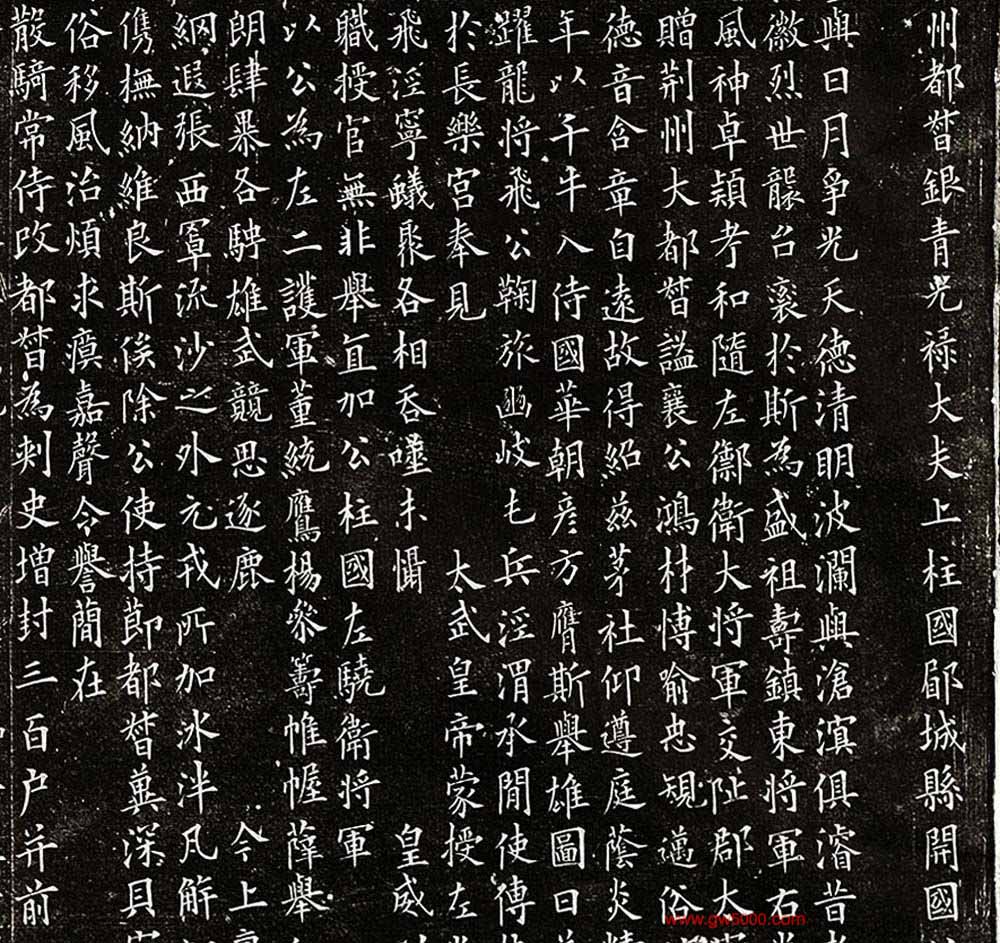 州都督銀青光禄大夫上柱國鄖城縣開國
與日月爭光天德清明波瀾與滄溟俱濬昔
徽烈世襲台衮於斯為盛祖壽鎮東将軍右
風神卓穎考和隨左禦衛大将軍交阯郡太
贈荆州大都督謚襄公鴻材博喻忠規邁俗
德音含章自遠故得紹兹茅社仰遵庭蔭炎
年以千牛入侍國華朝彦方膺斯舉雄圖日
躍龍将飛公鞠旅豳岐乇兵涇渭承間使傳
於長樂宫奉見 太武皇帝蒙授左
飛涇寧蟻聚各相吞噬未懾 皇威
職授官無非舉直加公柱國左驍衛将軍
以公為左二護軍董統鷹楊叅籌帷幄薛舉
朗肆暴各騁雄武競思逐鹿 今上
綱遐張西罩流沙之外元戎所加冰泮凡解
儁撫納維良斯俟除公使持節都督冀深貝
俗移風治煩求瘼嘉聲令譽簡在
散騎常侍改都督為刾史増封三百户并前
www.gw5000.com